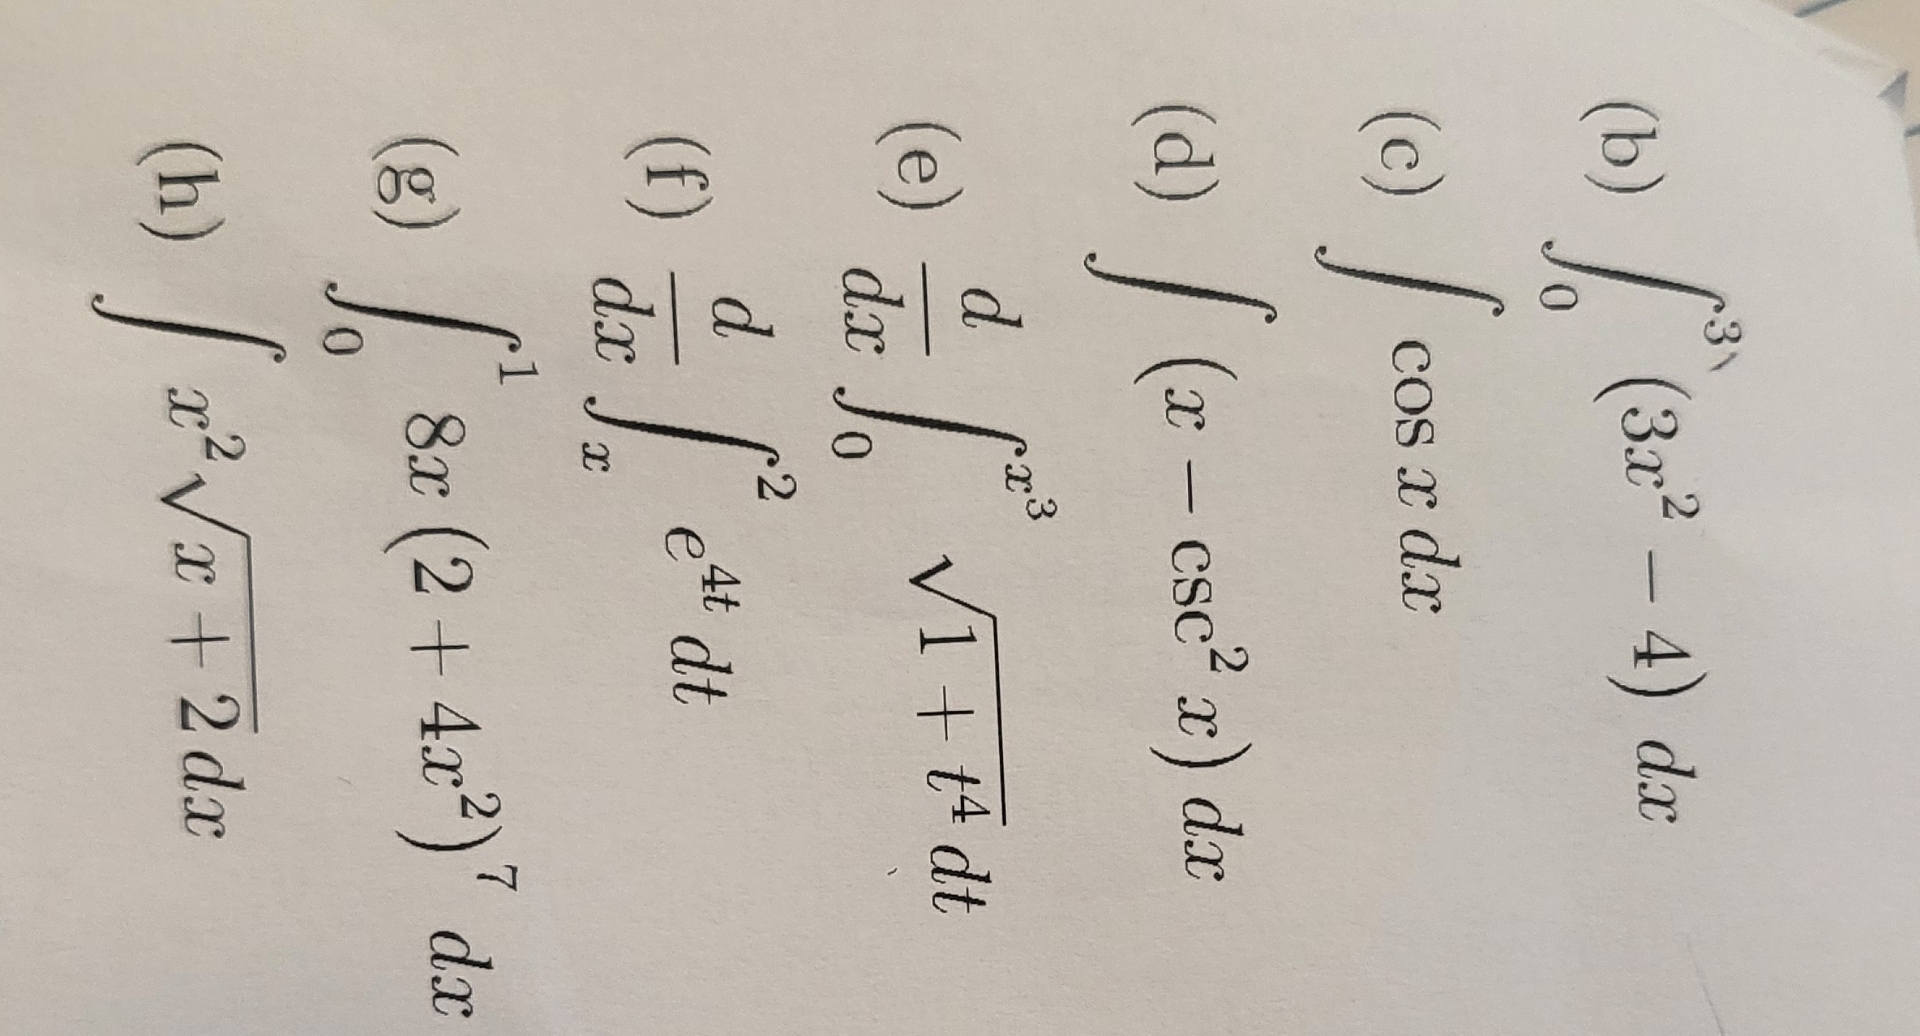 (b) ∫₀³ (3x² − 4) dx
(c) ∫ cos x dx
(d) ∫ (x − csc² x) dx
(e) d/dx ∫₀^{x³} √(1 + t⁴) dt
(f) d/dx ∫ₓ² e^{4t} dt
(g) ∫₀¹ 8x (2 + 4x²)⁷ dx
(h) ∫ x² √(x + 2) dx